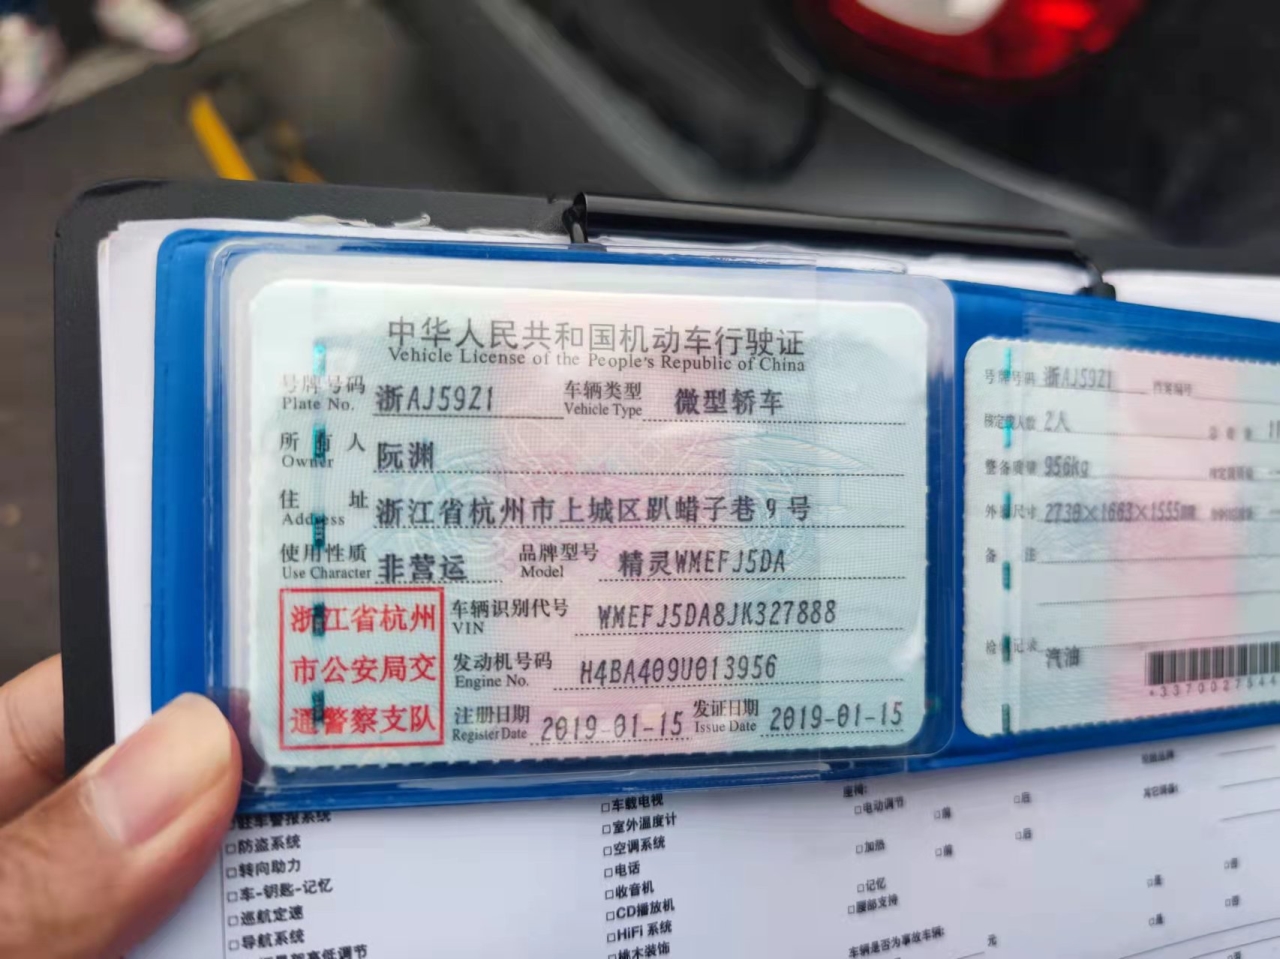 中华人民共和国机动车行驶证
Vehicle License of the People's Republic of China
号牌号码 浙AJ59Z1 车辆类型 微型轿车
Plate No. Vehicle Type
所有人 阮渊
Owner
住址 浙江省杭州市上城区趴蜡子巷9号
Address
使用性质 非营运 品牌型号 精灵WMEFJ5DA
Use Character Model
浙江省杭州
市公安局交
通警察支队
车辆识别代号 WMEFJ5DA8JK327888
VIN
发动机号码 H4BA409U013956
Engine No.
注册日期 2019-01-15 发证日期 2019-01-15
Register Date Issue Date
号牌号码 浙AJ59Z1 档案编号
核定载人数 2人
整备质量 956kg
外廓尺寸 2730×1663×1555mm
备注
检验记录 汽油
驻车警报系统
□防盗系统
□转向助力
□车-钥匙-记忆
□巡航定速
□导航系统
□车载电视
□室外温度计
□空调系统
□电话
□收音机
□CD播放机
□HiFi 系统
□桃木装饰
座椅:
□电动调节 □前 □后
□加热 □前 □后
□记忆
□腰部支持
车辆是否为事故车辆: 元
□是 □否
□是 □否